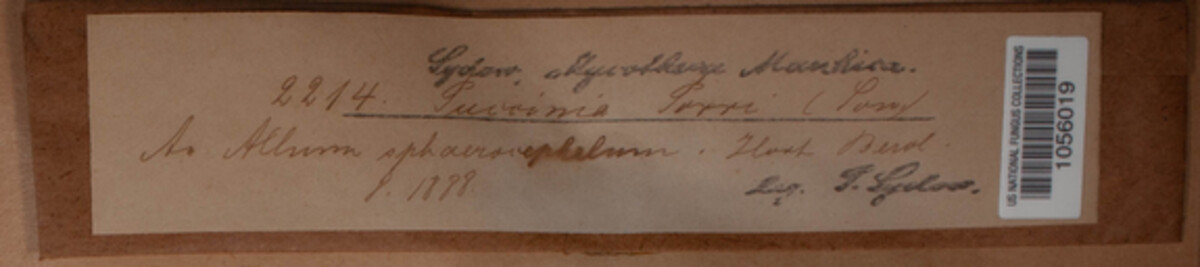 Sydow, Mycotheca Marchica.
2214. Puccinia Porri (Sow)
An Allium sphaerocephalum. Hort Berol.
8. 1898
Leg. P. Sydow.
US NATIONAL FUNGUS COLLECTIONS
1056019